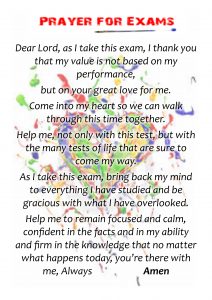 PRAYER FOR EXAMS
Dear Lord, as I take this exam, I thank you
that my value is not based on my
performance,
but on your great love for me.
Come into my heart so we can walk
through this time together.
Help me, not only with this test, but with
the many tests of life that are sure to
come my way.
As I take this exam, bring back my mind
to everything I have studied and be
gracious with what I have overlooked.
Help me to remain focused and calm,
confident in the facts and in my ability
and firm in the knowledge that no matter
what happens today, you're there with
me, Always Amen